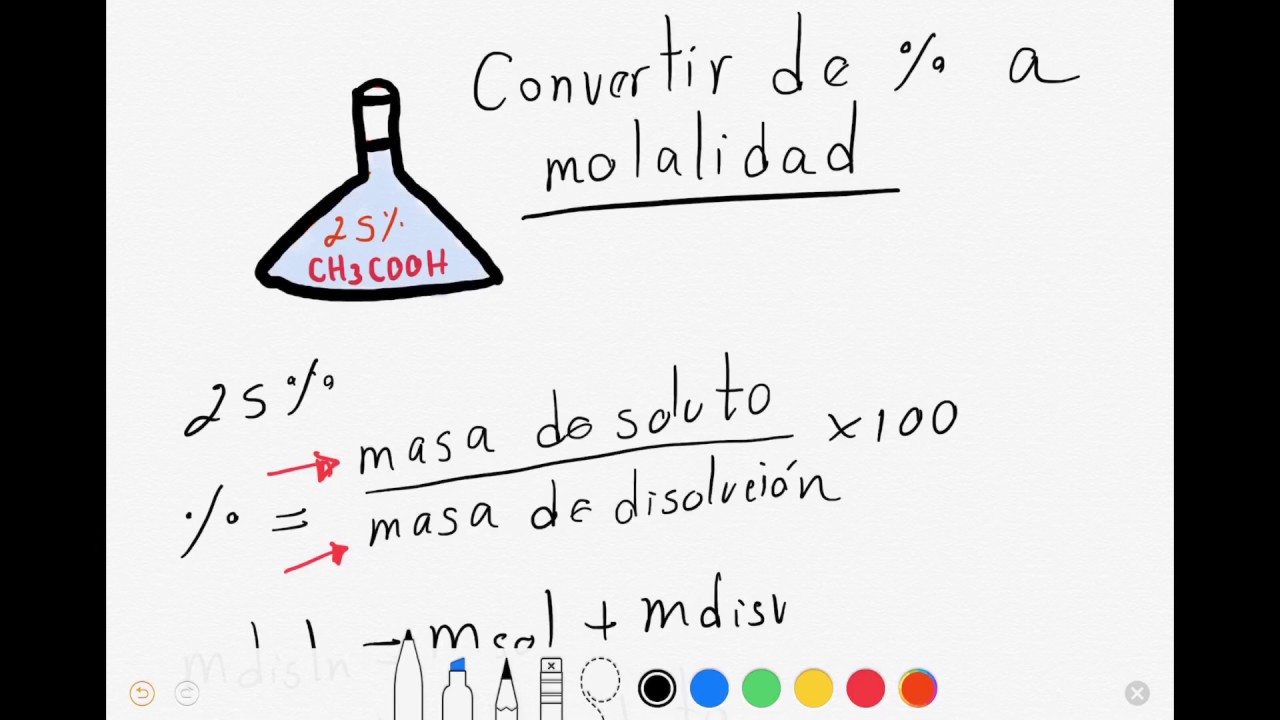 Convertir de % a
molalidad
25%
CH3COOH
25%
masa de soluto
% = x100
masa de disolución
msol + mdisv
mdisln